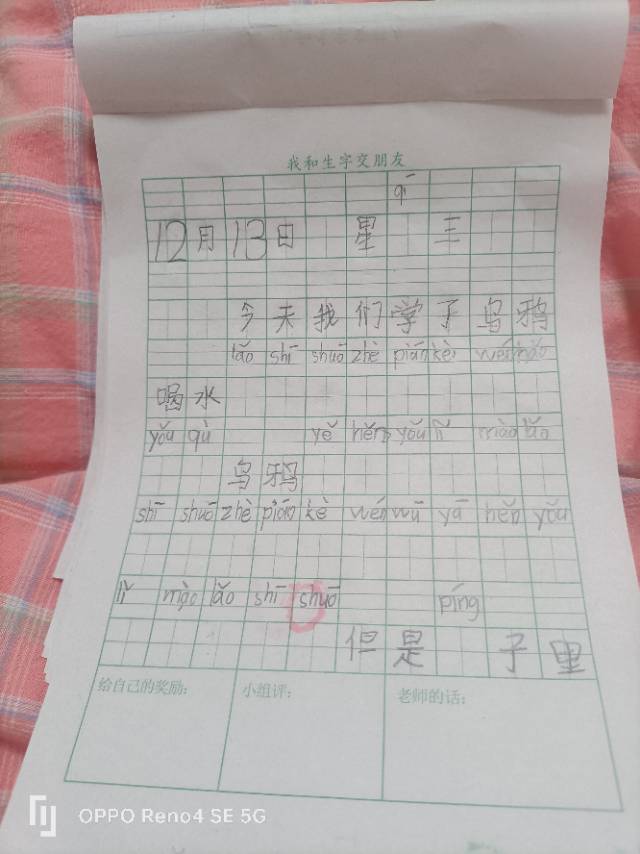 我和生字交朋友
qī
12月13日 星 三
今天我们学了乌鸦
lǎo shī shuō zhè piān kè wén hǎo
喝水
yǒu qù yě hěn yǒu lǐ mào lǎo
乌鸦
shī shuō zhè piān kè wén wū yā hěn yǒu
lǐ mào lǎo shī shuō píng
但是 子里
给自己的奖励: 小组评: 老师的话:
OPPO Reno4 SE 5G